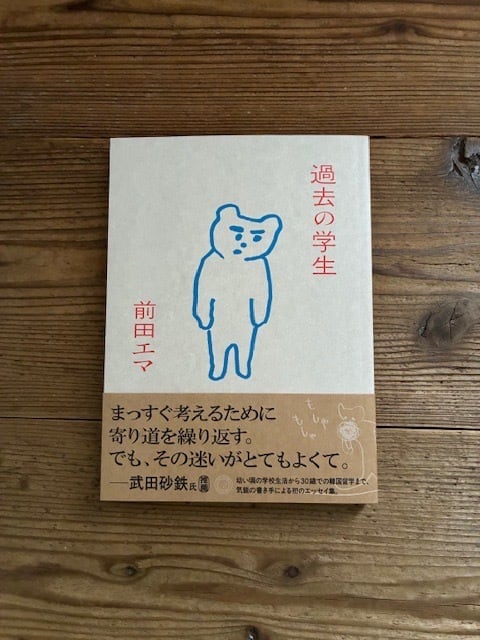 過去の学生
前田エマ
まっすぐ考えるために
寄り道を繰り返す。
でも、その迷いがとてもよくて。
──武田砂鉄氏 推薦
幼い頃の学校生活から30歳での韓国留学まで、
気鋭の書き手による初のエッセイ集。
もしゃ
もしゃ